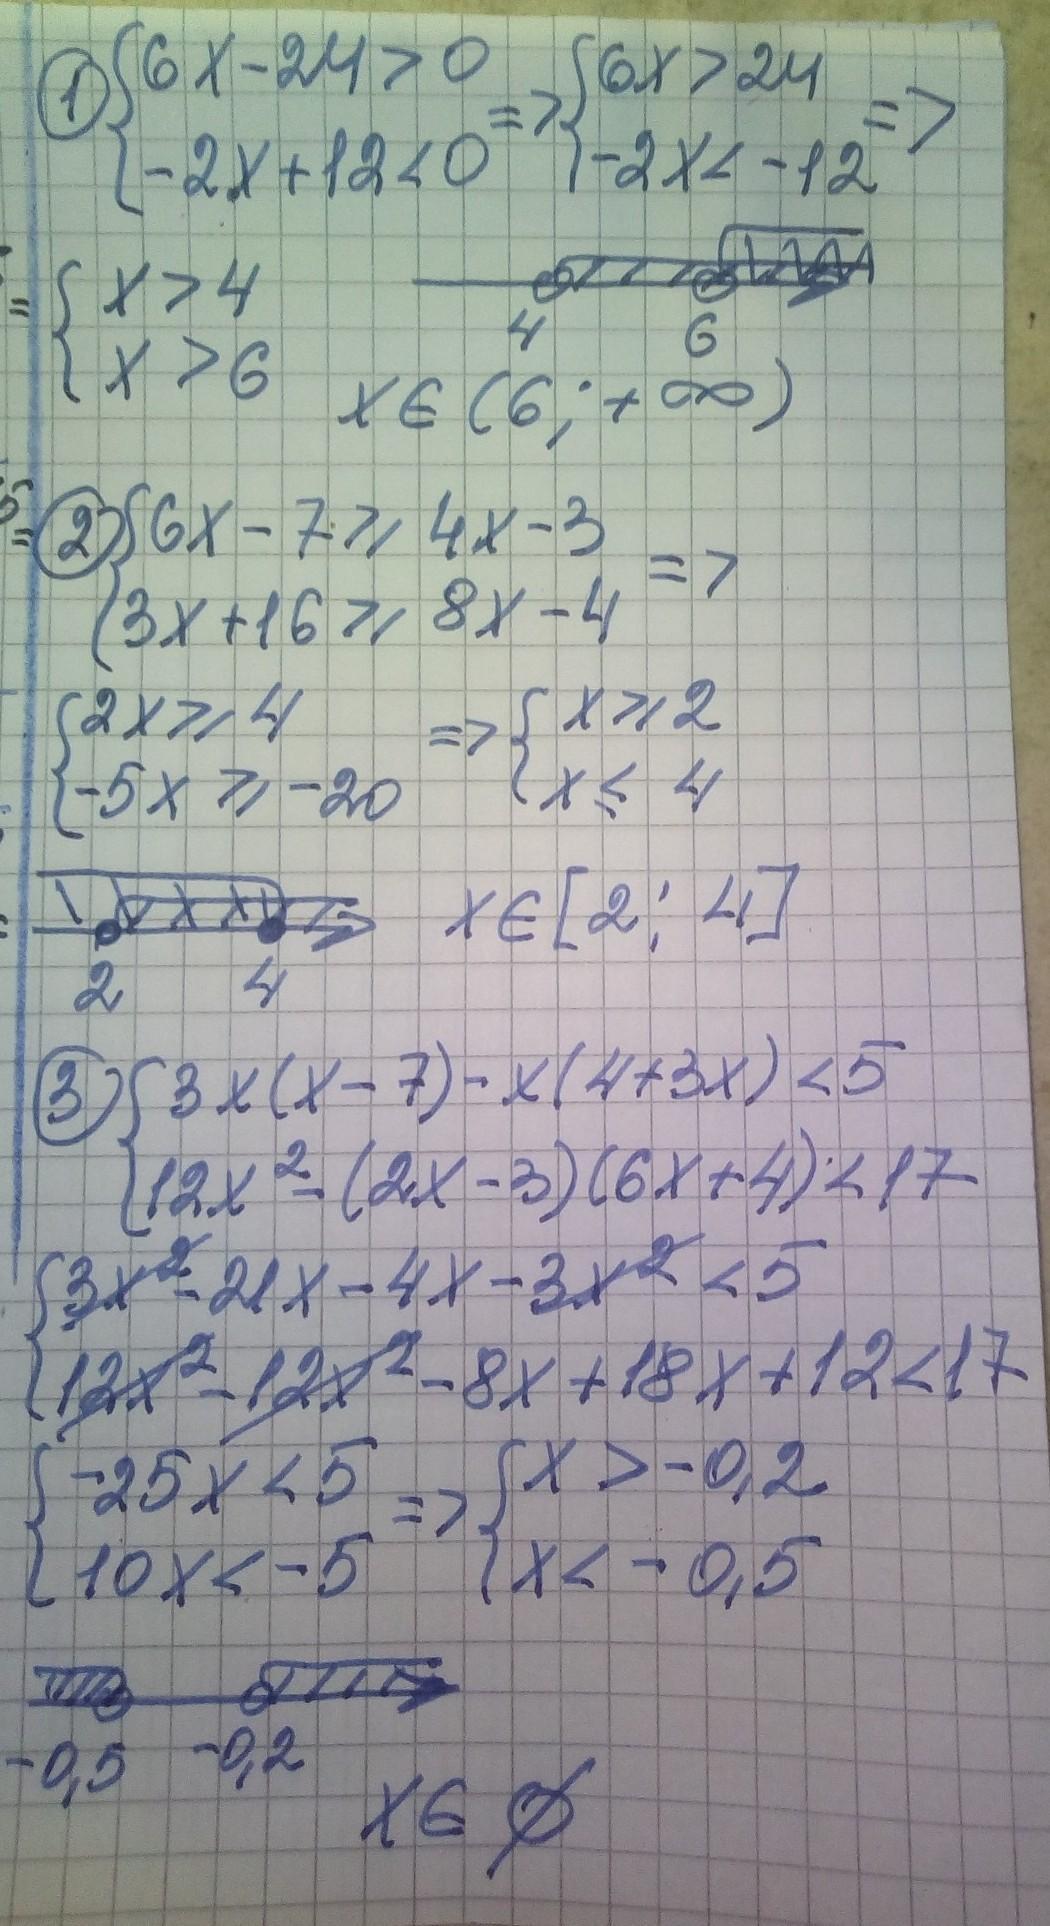 ① { 6x - 24 > 0 => { 6x > 24 =>
{ -2x + 12 < 0 { -2x < -12
= { x > 4
{ x > 6
4 6
x ∈ (6; + ∞)
② { 6x - 7 ⩾ 4x - 3 =>
{ 3x + 16 ⩾ 8x - 4
{ 2x ⩾ 4 => { x ⩾ 2
{ -5x ⩾ -20 { x ⩽ 4
2 4
x ∈ [2; 4]
③ { 3x(x - 7) - x(4 + 3x) < 5
{ 12x² - (2x - 3)(6x + 4) < 17
{ 3x² - 21x - 4x - 3x² < 5
{ 12x² - 12x² - 8x + 18x + 12 < 17
{ -25x < 5 => { x > -0,2
{ 10x < -5 { x < -0,5
-0,5 -0,2
x ∈ ∅